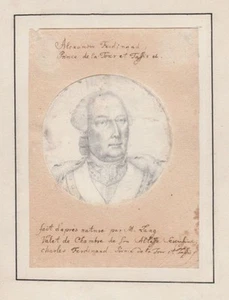 Alexandre Ferdinand
Prince de la Tour et Taffis
fait d'apres nature par M. Lang
Valet de Chambre de Son Altesse
Charles Ferdinand Prince de la Tour et Taffis